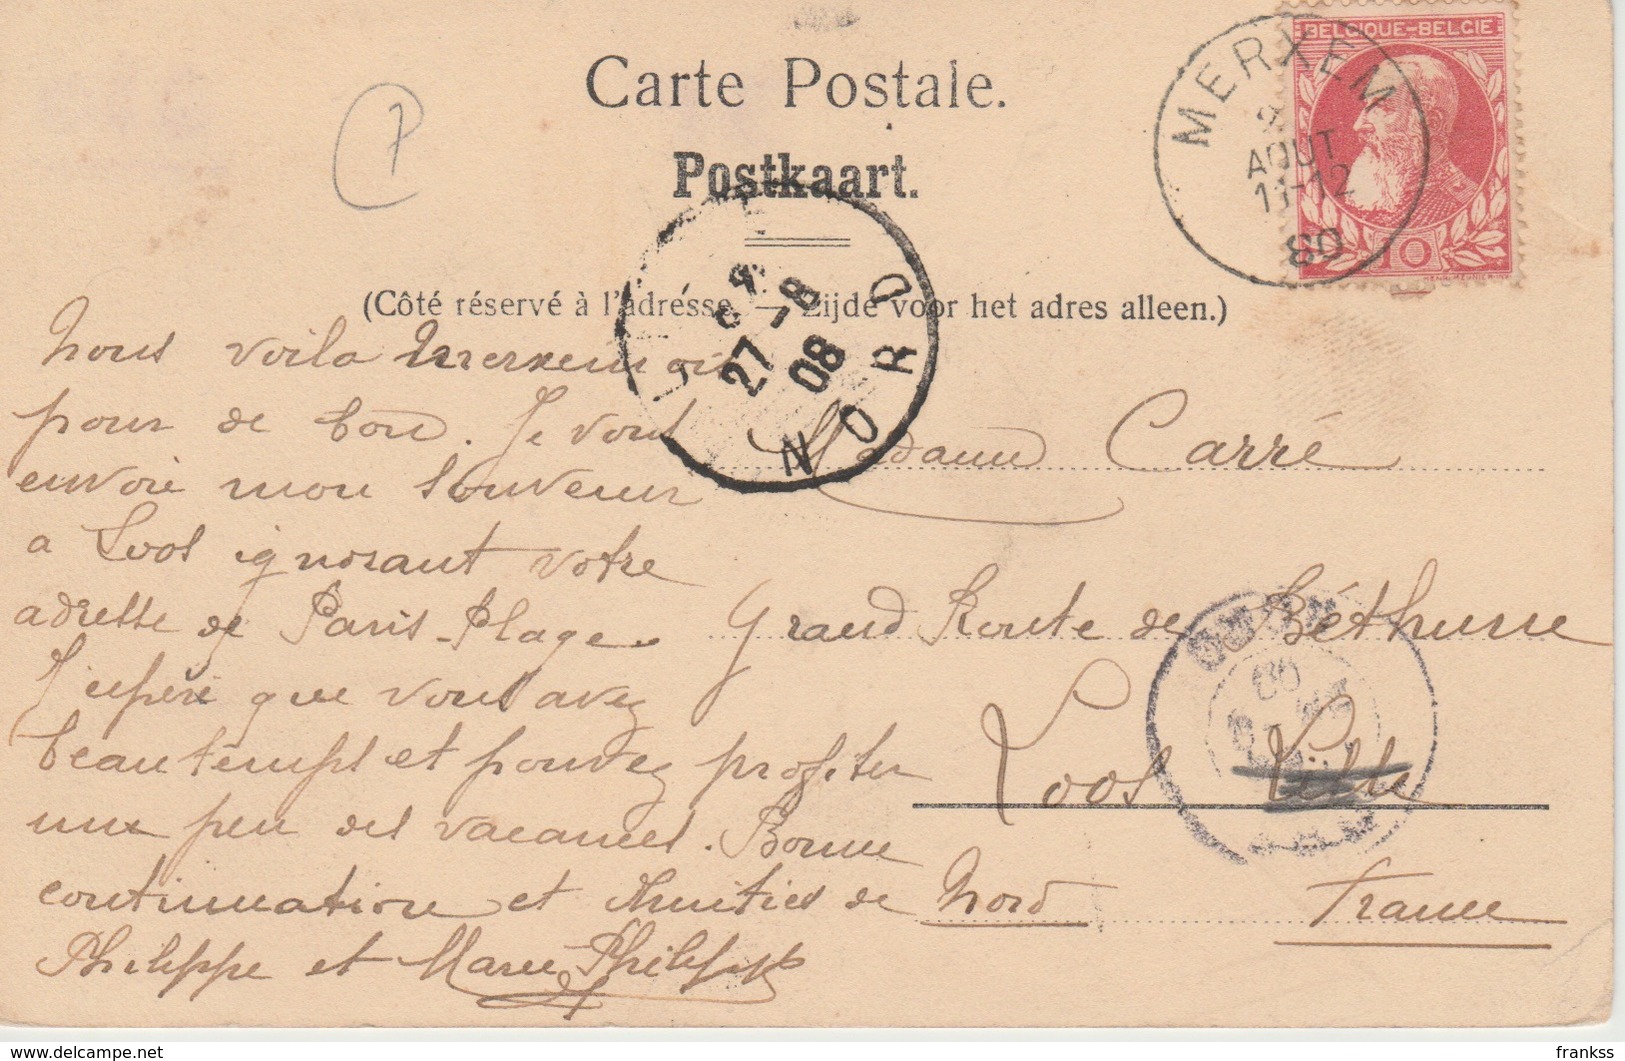 Carte Postale.
Postkaart.
(Côté réservé à l'adresse. — Zijde voor het adres alleen.)
BELGIQUE-BELGIE
10
MERXEM
AOUT
11-12
08
27 -8
08
NORD
Nous voila Merxemois
pour de bon. Je vous
envoie mon souvenir
a Loos ignorant votre
adresse de Paris-Plage.
J'espère que vous avez
beau temps et pouvez profiter
un peu des vacances. Bonne
continuation et Amitiés de
Philippe et Marie Philippe
Madame Carré
Grand Route de Béthune
Loos Lille
Nord France
delcampe.net
frankss